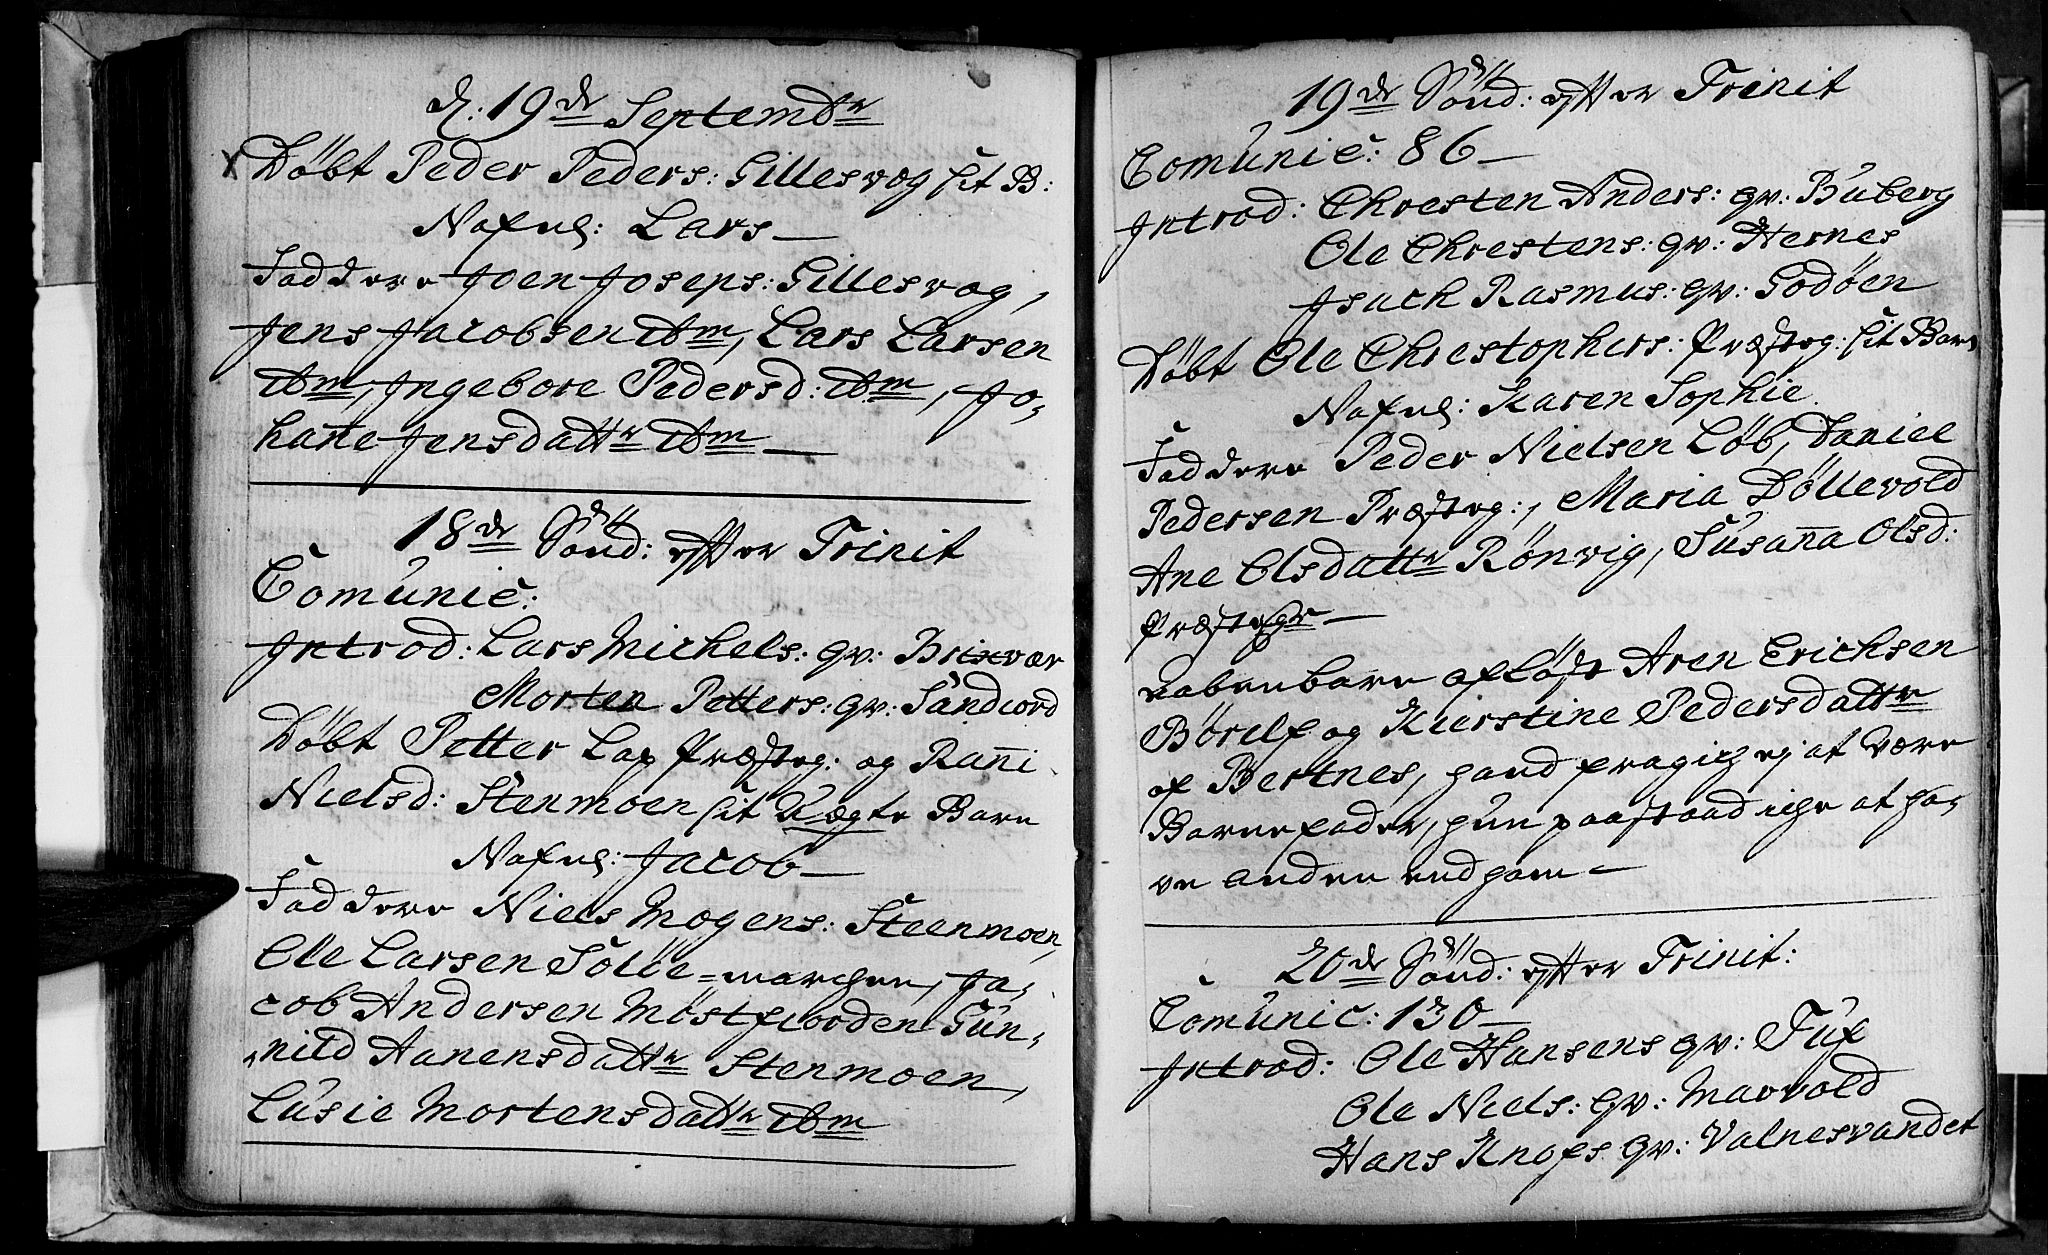 d: 19de Septembr
x Döbt Peder Peders: Gillesvog sit B:
Nafnl: Lars —
Faddere Joen Joseps: Gillesvog,
Jens Jacobsen ibm, Lars Larsen
ibm, Ingebore Pedersd: ibm, Jo-
hane Jensdattr ibm —
18de Sönd: effter Trinit
Comunic:
Introd: Lars Michels: qv: Brixvær
Morten Petters: qv: Sandiord
Döbt Petter Lap Præsteg: og Rani
Nielsd: Stenmoen sit Uægte Barn
Nafnl: Jacob —
Faddere Niels Mogens: Steenmoen,
Ole Larsen Sölöe-marchen, Ja-
cob Andersen Möstfiorden Gun-
nild Aanensdattr Stenmoen,
Lusie Mortensdattr ibm
19de Sönd: effter Trinit
Comunic: 86 —
Introd: Chresten Anders: qv: Buberg
Ole Chrestens: qv: Hernes
Isach Rasmus: qv: Godöen
Döbt Ole Chrestophers: Præsteg: sit Barn
Nafnl: Karen Sophie.
Faddere Peder Nielsen Löb, Daniel
Pedersen Præsteg:, Maria Döllevold
Ane Olsdattr Rönvig, Susana Olsd:
Præstegr —
Aabenbare aflöst Aren Erichsen
Börelf og Kierstine Pedersdattr
af Bertnes, hand fragich ej at være
Barnefader, hun paastaad iche at ha-
ve anden end ham —
20de Sönd: effter Trinit:
Comunic: 130 —
Introd: Ole Hansens qv: Tuf
Ole Niels: qv: Marvold
Hans Knops qv: Valnesvandet